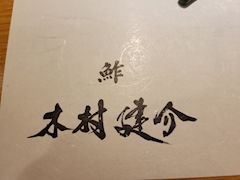 鮓
木村健介